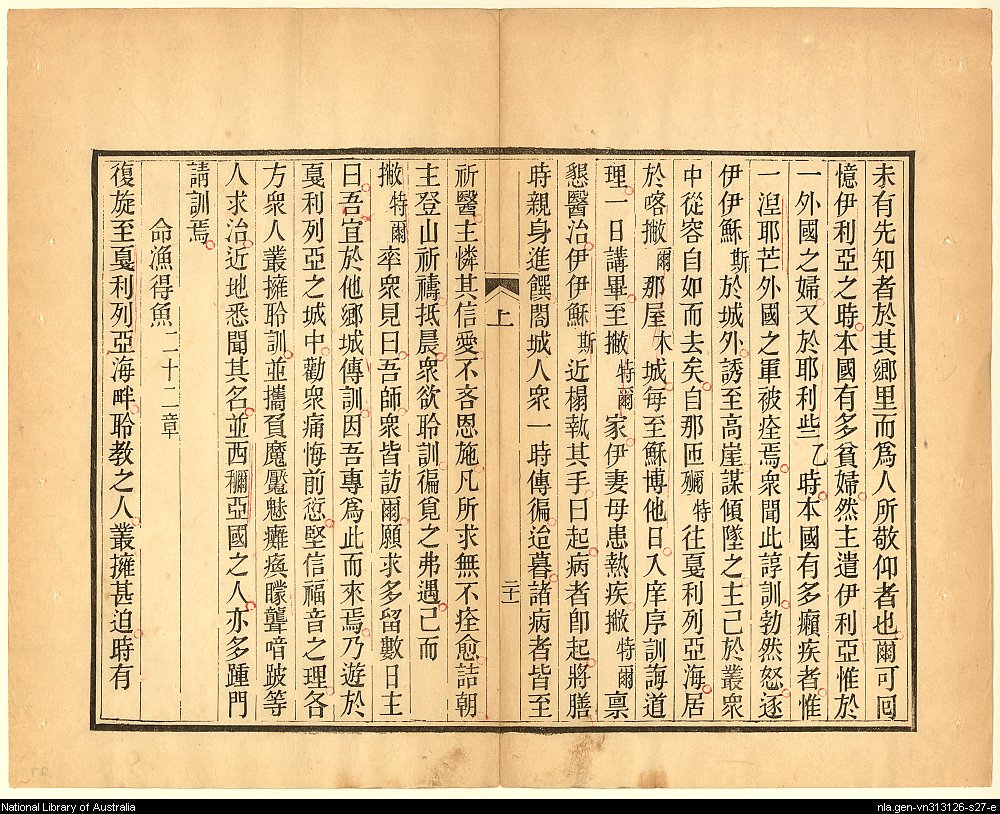 未有先知者於其鄉里而爲人所敬仰者也爾可囘
憶伊利亞之時本國有多貧婦然主遣伊利亞惟於
一外國之婦又於耶利些乙時本國有多癩疾者惟
一湼耶芒外國之軍被痊焉衆聞此諄訓勃然怒逐
伊伊穌斯於城外誘至高崖謀傾墜之主己於叢衆
中從容自如而去矣自那匝獮特往戛利列亞海居
於喀撇爾那屋木城每至穌博他日入庠序訓誨道
理一日講畢至撇特爾家伊妻母患熱疾撇特爾禀
懇醫治伊伊穌斯近榻執其手曰起病者卽起將膳
時親身進饌閤城人衆一時傳徧迨暮諸病者皆至
上
二十一
祈醫主憐其信愛不吝恩施凡所求無不痊愈詰朝
主登山祈禱抵晨衆欲聆訓徧覓之弗遇己而
撇特爾率衆見曰吾師衆皆訪爾願求多留數日主
曰吾宜於他鄉城傳訓因吾專爲此而來焉乃遊於
戛利列亞之城中勸衆痛悔前愆堅信福音之理各
方衆人叢擁聆訓並攜負魔魘魅癱瘓矇聾喑跛等
人求治近地悉聞其名並西穪亞國之人亦多踵門
請訓焉
命漁得魚二十二章
復旋至戛利列亞海畔聆教之人叢擁甚迫時有
National Library of Australia
nla.gen-vn313126-s27-e